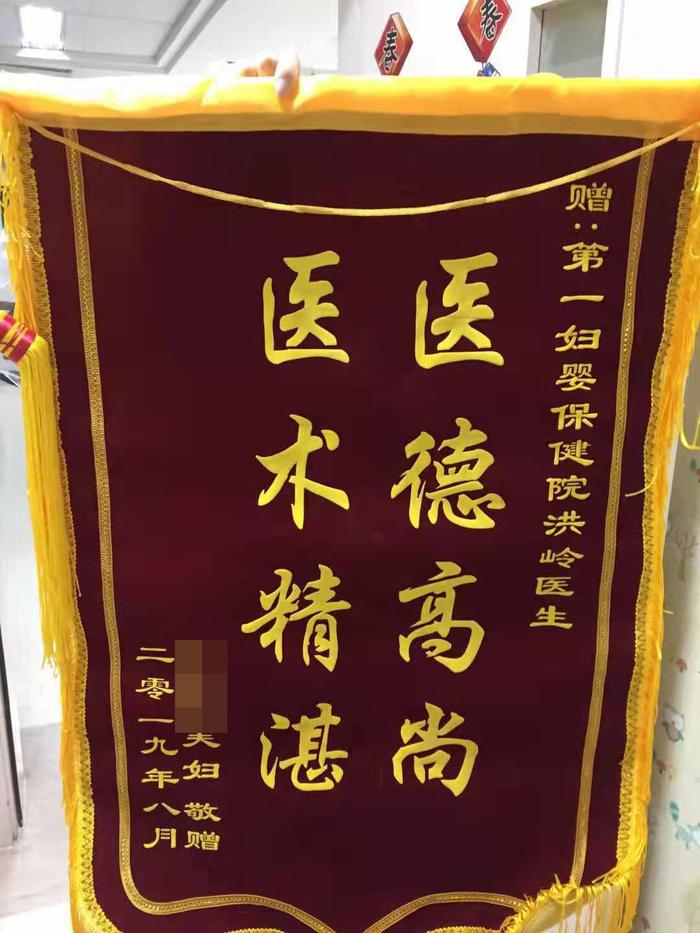 春
赠:第一妇婴保健院洪岭医生
医德高尚
医术精湛
夫妇 敬赠
二零一九年八月